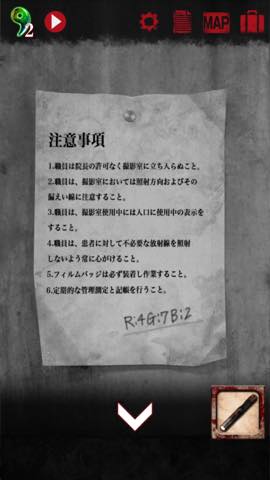 2
MAP
注意事項
1.職員は院長の許可なく撮影室に立ち入らぬこと。
2.職員は、撮影室においては照射方向およびその
漏えい線に注意すること。
3.職員は、撮影室使用中には入口に使用中の表示を
すること。
4.職員は、患者に対して不必要な放射線を照射
しないよう常に心がけること。
5.フィルムバッジは必ず装着し作業すること。
6.定期的な管理測定と記帳を行うこと。
R:4G:7B:2